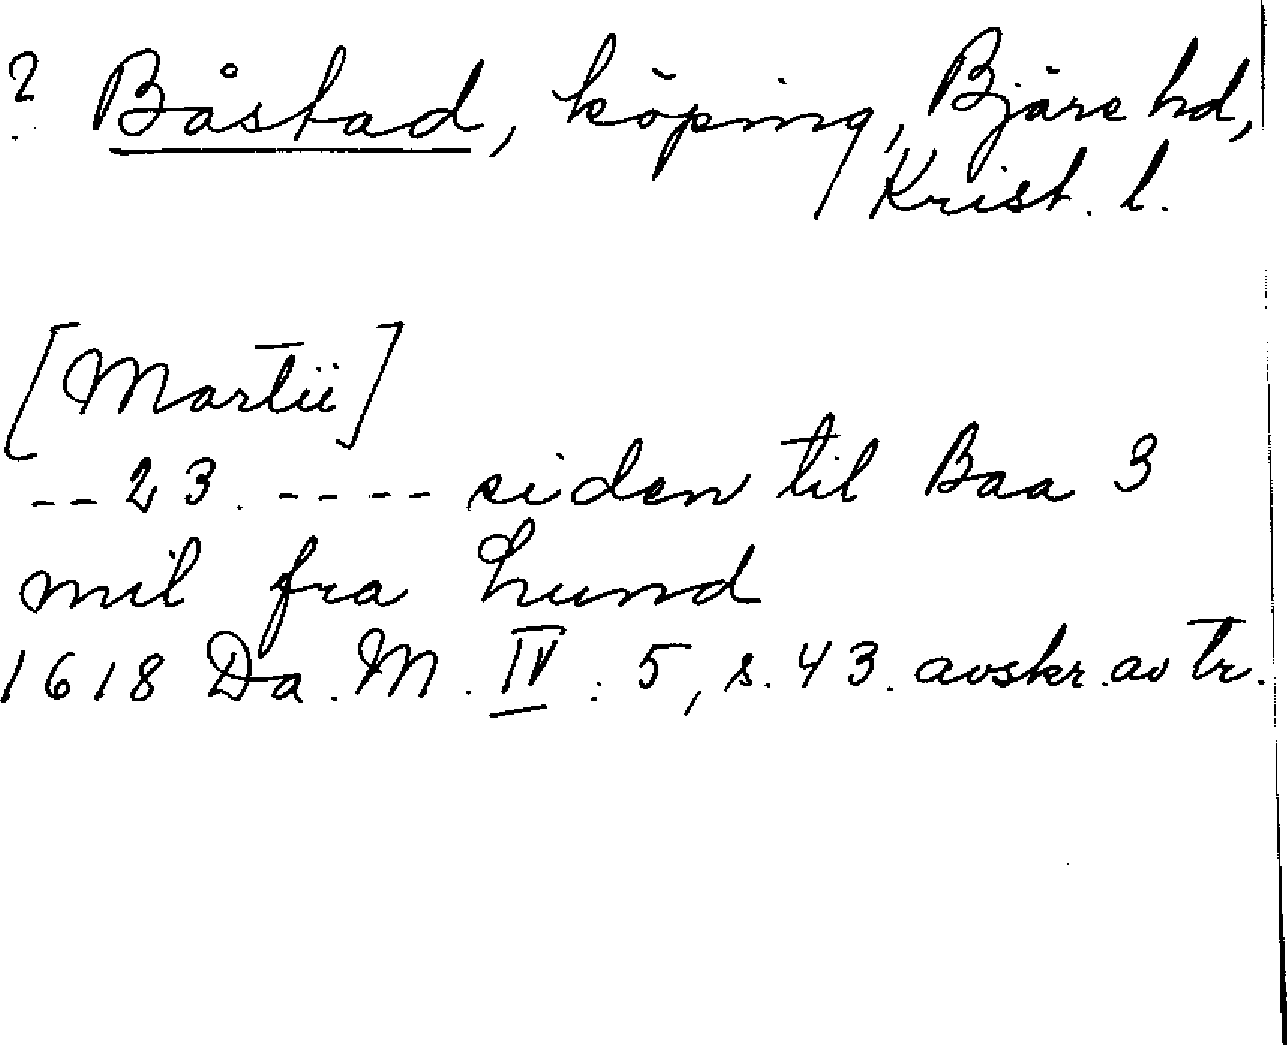 ? Båstad, köping, Bjäre hd,
Krist. l.
[Martii]
-- 23. ---- siden til Baa 3
mil fra Lund
1618 Da. M. IV : 5, s. 43. avskr. av tr.